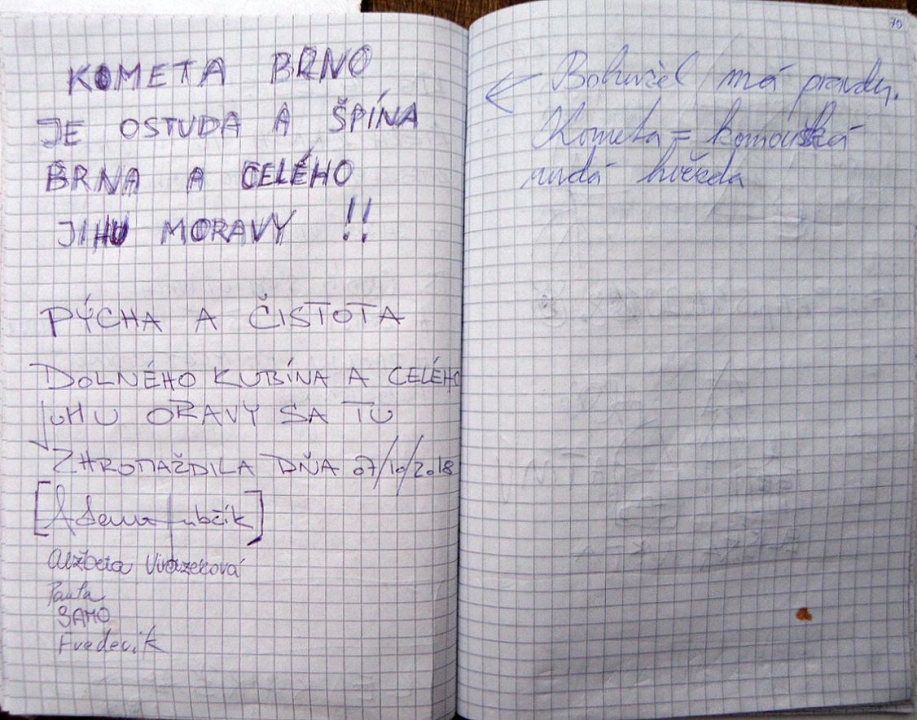 KOMETA BRNO
JE OSTUDA A ŠPÍNA
BRNA A CELÉHO
JIHU MORAVY !!
PÝCHA A ČISTOTA
DOLNÉHO KUBÍNA A CELÉHO
JUHU ORAVY SA TU
ZHROMAŽDILA DŇA 07/10/2018
Alžbeta
Paula
SAMO
Frederik
70
← Bohužel má pravdu.
Kometa = komoušká
rudá hvězda